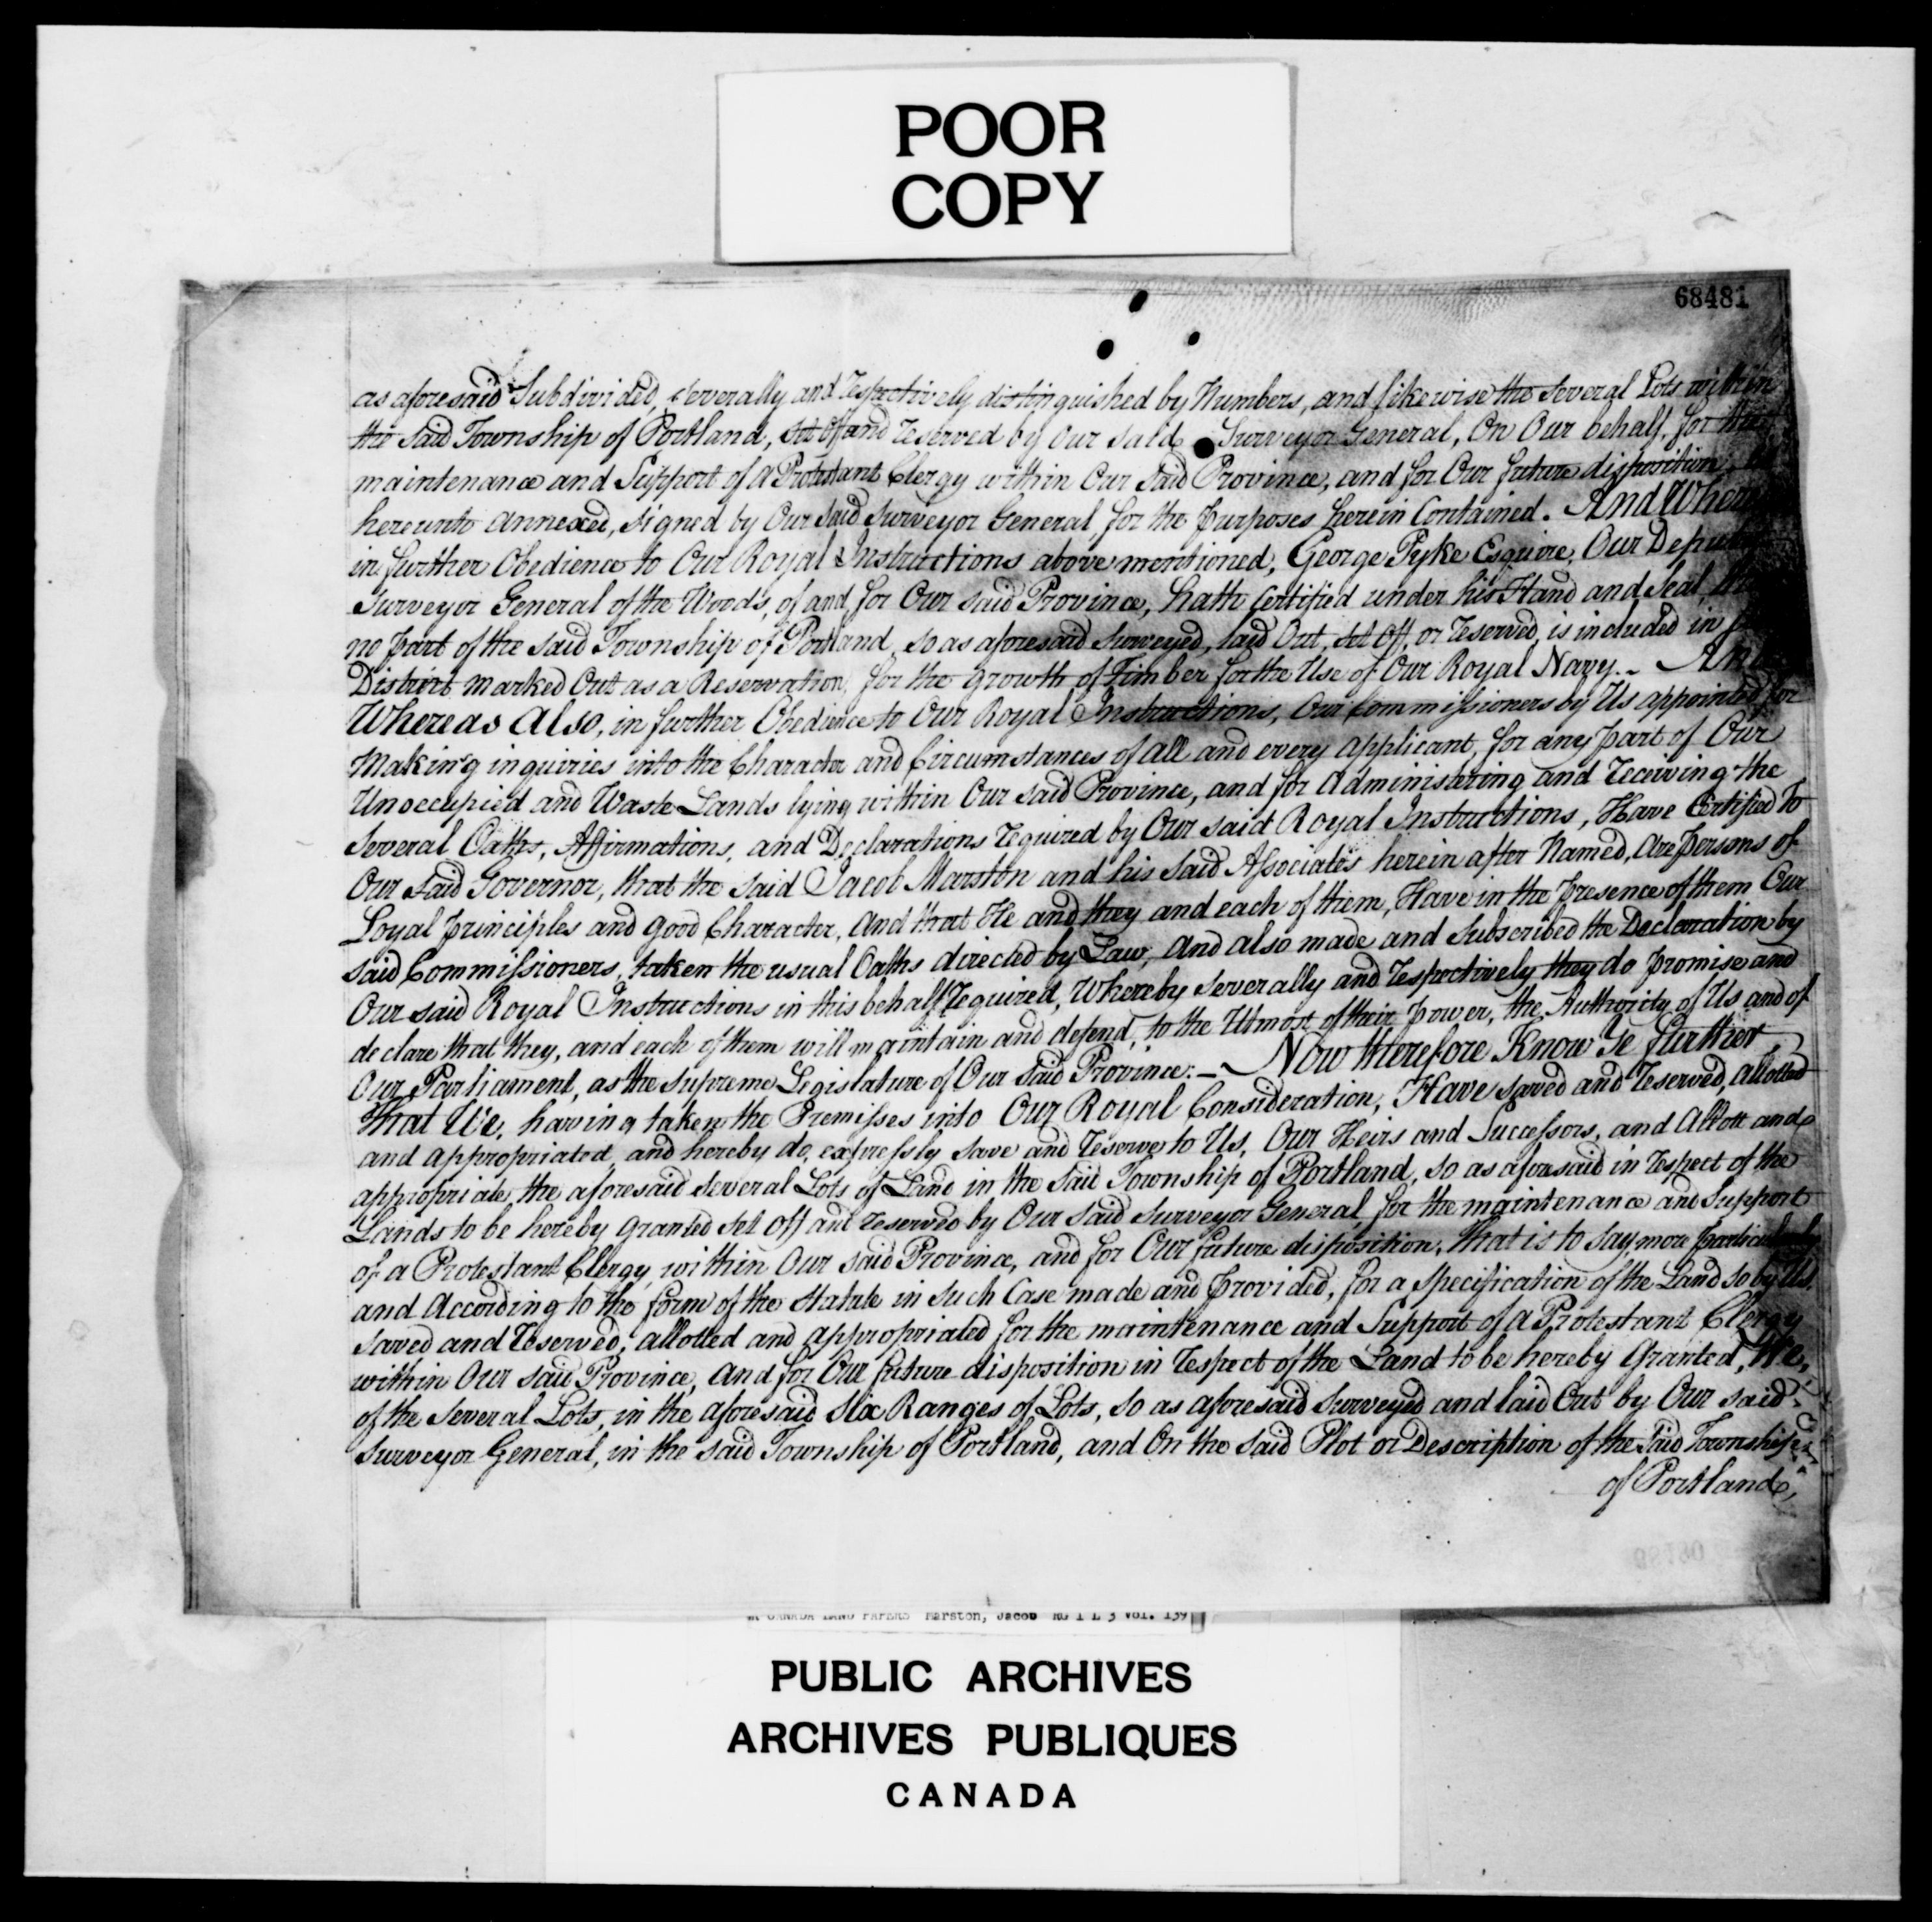 POOR
COPY
68481
as aforesaid Subdivided, severally and respectively distinguished by Numbers, and likewise the several Lots within
the said Township of Portland, set off and reserved by Our said Surveyor General, On Our behalf, for the
maintenance and Support of a Protestant Clergy within Our said Province, and for Our future disposition,
hereunto annexed, signed by Our said Surveyor General, for the purposes herein Contained. And Where
in further Obedience to Our Royal Instructions above mentioned, George Pyke Esquire, Our Deputy
Surveyor General of the Woods, of and for Our said Province, hath Certified under his Hand and Seal,
no part of the said Township of Portland, so as aforesaid surveyed, laid Out, set Off, or reserved, is included in
District marked Out as a Reservation for the growth of Timber for the Use of Our Royal Navy. — And
Whereas also, in further Obedience to Our Royal Instructions, Our Commissioners by Us appointed for
Making inquiries into the Character and Circumstances of all and every applicant, for any part of Our
Unoccupied and Waste Lands lying within Our said Province, and for Administering and receiving the
several Oaths, Affirmations, and Declarations required by Our said Royal Instructions, Have Certified To
Our said Governor, that the said Jacob Marston and his said Associates herein after Named, are persons of
Loyal principles and good Character, and that He and they and each of them, Have in the presence of them Our
said Commissioners, taken the usual Oaths directed by Law, and also made and subscribed the Declaration by
Our said Royal Instructions in this behalf required, whereby severally and respectively they do promise and
declare that they, and each of them will maintain and defend, to the Utmost of their power, the Authority of Us and of
Our Parliament, as the supreme Legislature of Our said Province: — Now therefore Know Ye further
that We, having taken the Premisses into Our Royal Consideration, Have saved and reserved, allotted
and appropriated, and hereby do, expressly save and reserve to Us, Our Heirs and Successors, and Allott and
appropriate, the aforesaid several Lots of Land in the said Township of Portland, so as aforesaid in respect of the
Lands to be hereby granted set off and reserved by Our said Surveyor General, for the maintenance and support
of a Protestant Clergy within Our said Province, and for Our future disposition, that is to say, more particularly
and according to the form of the statute in such Case made and provided, for a specification of the Land so by Us,
saved and reserved, allotted and appropriated for the maintenance and Support of a Protestant Clergy
within Our said Province, and for Our future disposition in respect of the Land to be hereby Granted, We,
of the several Lots, in the aforesaid Six Ranges of Lots, so as aforesaid surveyed and laid Out by Our said
surveyor General, in the said Township of Portland, and On the said Plot or Description of the said Township
of Portland,
CANADA LAND PAPERS Marston, Jacob RG 1 L 3 Vol. 139
PUBLIC ARCHIVES
ARCHIVES PUBLIQUES
CANADA